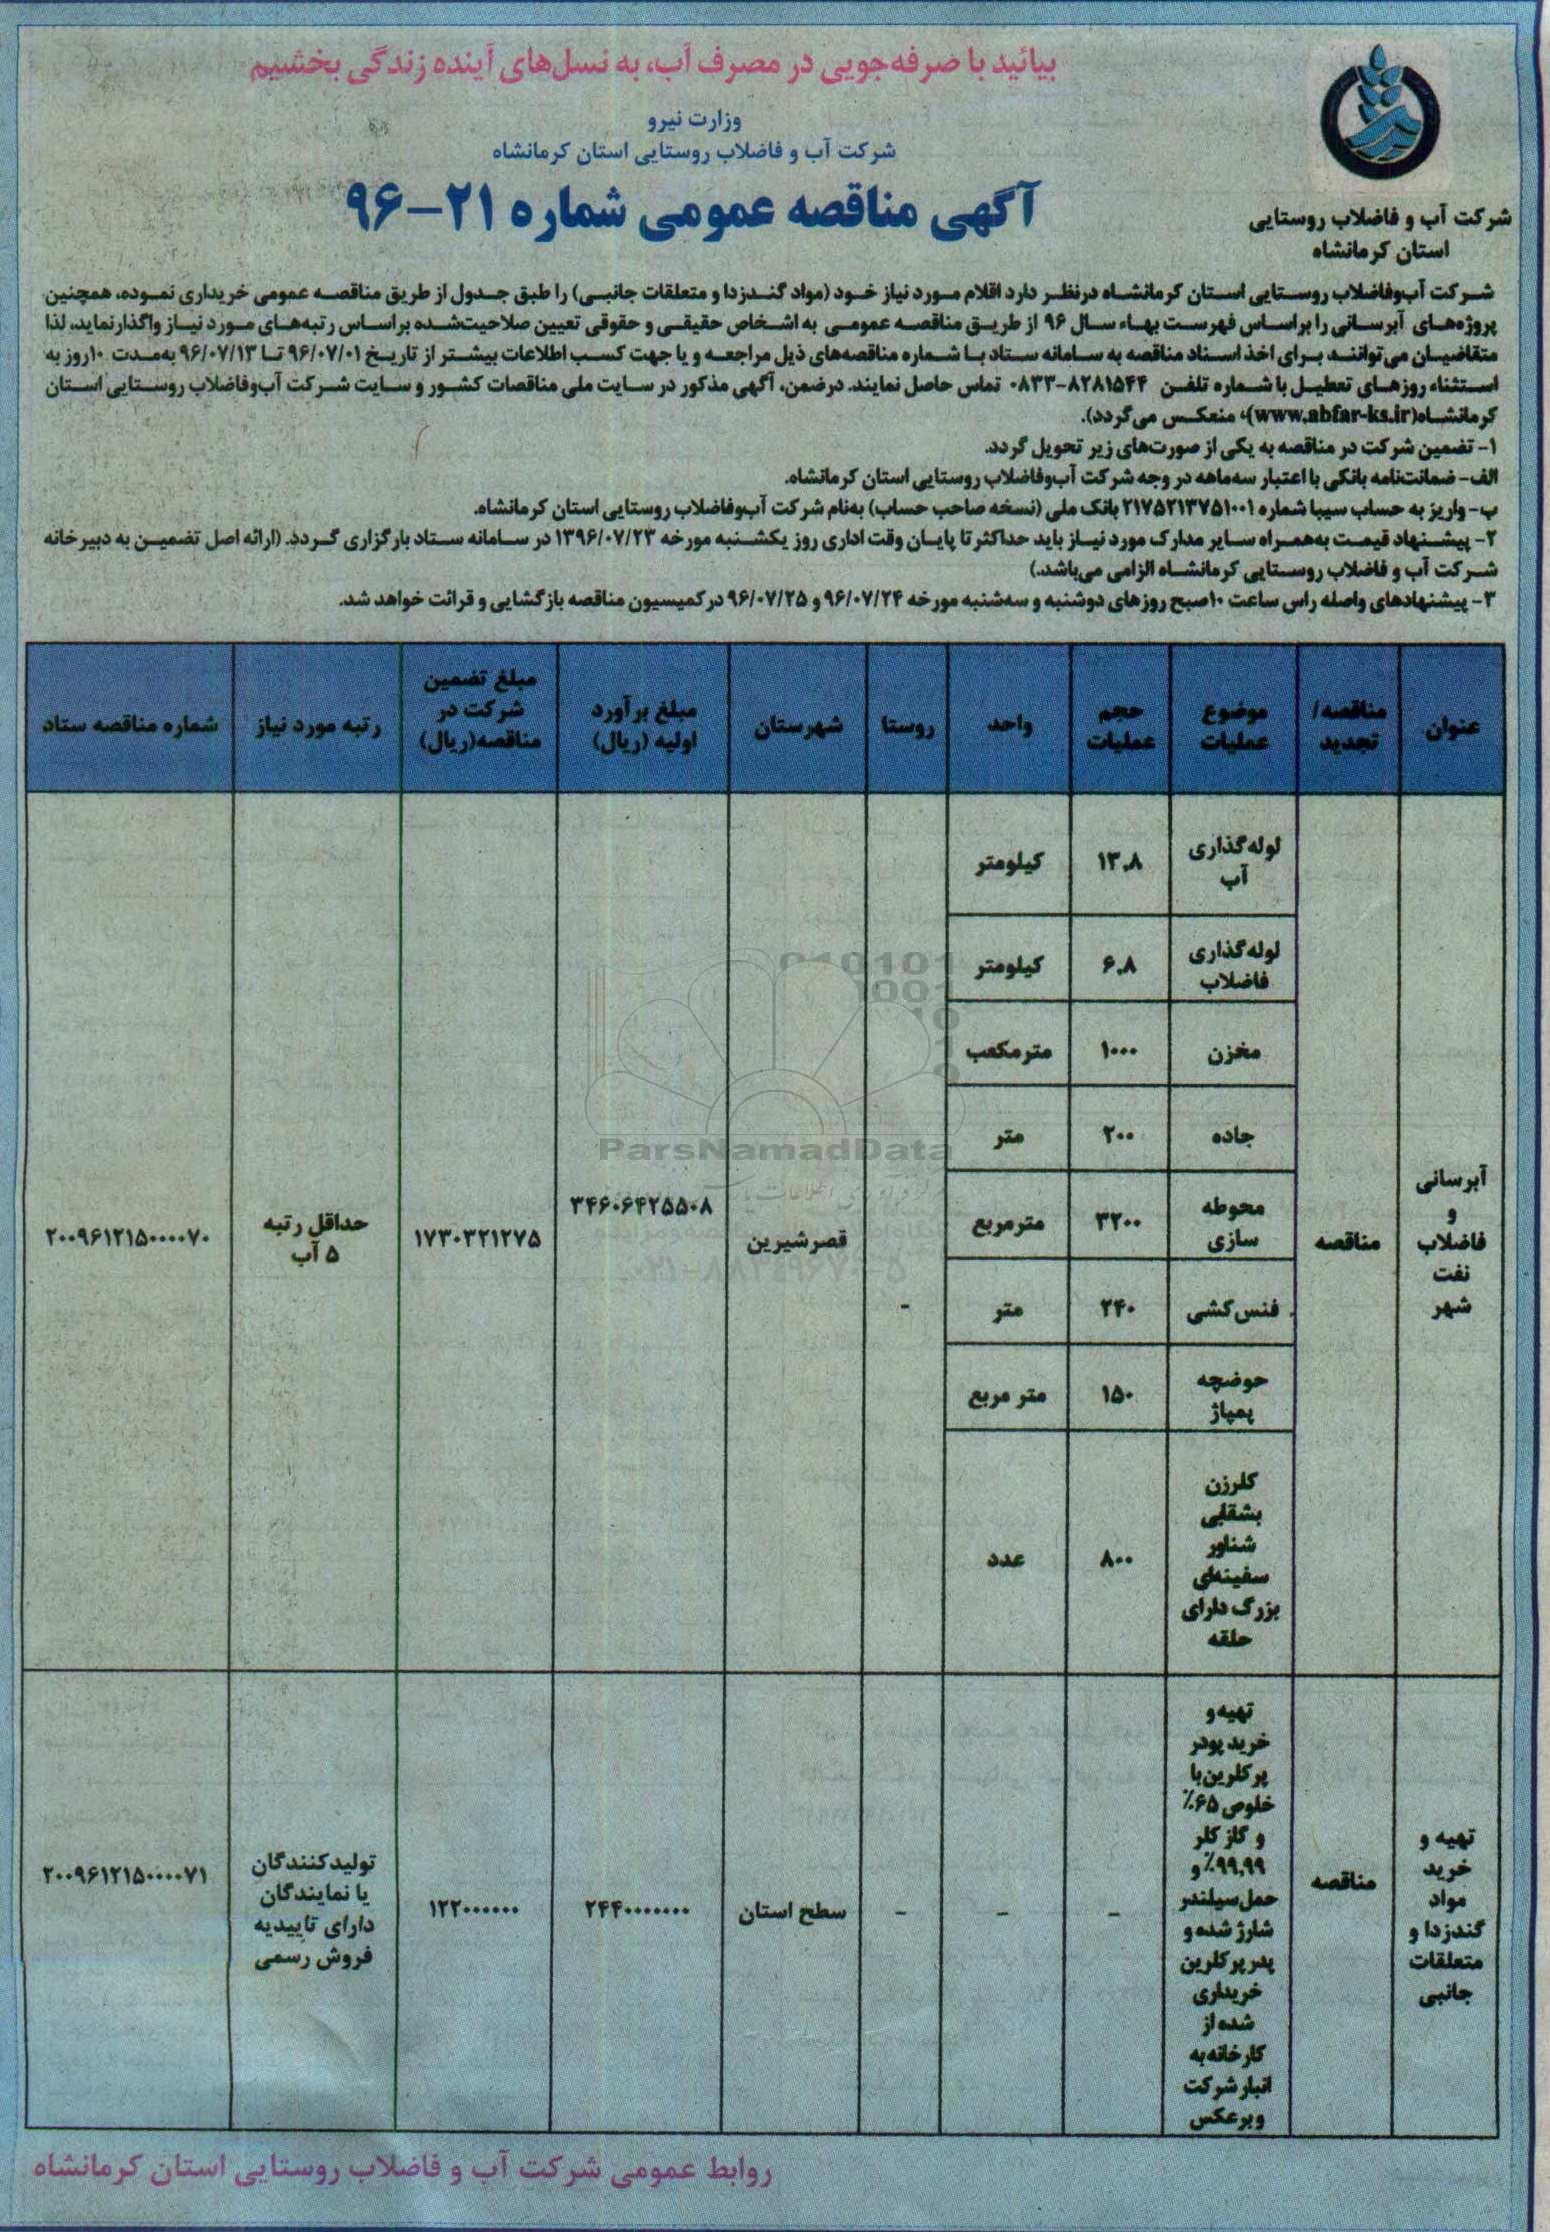 بیائید با صرفه‌جویی در مصرف آب، به نسل‌های آینده زندگی بخشیم
وزارت نیرو
شرکت آب و فاضلاب روستایی استان کرمانشاه
آگهی مناقصه عمومی شماره ۲۱-۹۶
شرکت آب و فاضلاب روستایی
استان کرمانشاه
شرکت آب‌وفاضلاب روستایی استان کرمانشاه درنظر دارد اقلام مورد نیاز خود (مواد گندزدا و متعلقات جانبی) را طبق جدول از طریق مناقصه عمومی خریداری نموده، همچنین
پروژه‌های آبرسانی را براساس فهرست بهاء سال ۹۶ از طریق مناقصه عمومی به اشخاص حقیقی و حقوقی تعیین صلاحیت‌شده براساس رتبه‌های مورد نیاز واگذارنماید، لذا
متقاضیان می‌توانند برای اخذ اسناد مناقصه به سامانه ستاد با شماره مناقصه‌های ذیل مراجعه و یا جهت کسب اطلاعات بیشتر از تاریخ ۹۶/۰۷/۰۱ تا ۹۶/۰۷/۱۳ به‌مدت ۱۰روز به
استثناء روزهای تعطیل با شماره تلفن ۸۲۸۱۵۴۴-۰۸۳۳ تماس حاصل نمایند. درضمن، آگهی مذکور در سایت ملی مناقصات کشور و سایت شرکت آب‌وفاضلاب روستایی استان
کرمانشاه(www.abfar-ks.ir)، منعکس می‌گردد).
۱- تضمین شرکت در مناقصه به یکی از صورت‌های زیر تحویل گردد.
الف- ضمانت‌نامه بانکی با اعتبار سه‌ماهه در وجه شرکت آب‌وفاضلاب روستایی استان کرمانشاه.
ب- واریز به حساب سیبا شماره ۲۱۷۵۲۱۳۷۵۱۰۰۱ بانک ملی (نسخه صاحب حساب) به‌نام شرکت آب‌وفاضلاب روستایی استان کرمانشاه.
۲- پیشنهاد قیمت به‌همراه سایر مدارک مورد نیاز باید حداکثر تا پایان وقت اداری روز یکشنبه مورخه ۱۳۹۶/۰۷/۲۳ در سامانه ستاد بارگزاری گردد. (ارائه اصل تضمین به دبیرخانه
شرکت آب و فاضلاب روستایی کرمانشاه الزامی می‌باشد.)
۳- پیشنهادهای واصله راس ساعت ۱۰صبح روزهای دوشنبه و سه‌شنبه مورخه ۹۶/۰۷/۲۴ و ۹۶/۰۷/۲۵ در کمیسیون مناقصه بازگشایی و قرائت خواهد شد.
عنوان
مناقصه/
تجدید
موضوع
عملیات
حجم
عملیات
واحد
روستا
شهرستان
مبلغ برآورد
اولیه (ریال)
مبلغ تضمین
شرکت در
مناقصه(ریال)
رتبه مورد نیاز
شماره مناقصه ستاد
آبرسانی
و
فاضلاب
نفت
شهر
مناقصه
لوله‌گذاری
آب
۱۳.۸
کیلومتر
لوله‌گذاری
فاضلاب
۶.۸
کیلومتر
مخزن
۱۰۰۰
مترمکعب
جاده
۲۰۰
متر
محوطه
سازی
۳۲۰۰
مترمربع
فنس‌کشی
۲۴۰
متر
حوضچه
پمپاژ
۱۵۰
متر مربع
کلرزن
بشقابی
شناور
سفینه‌ای
بزرگ دارای
حلقه
۸۰۰
عدد
-
قصرشیرین
۳۴۶۰۶۴۲۵۵۰۸
۱۷۳۰۳۲۱۲۷۵
حداقل رتبه
۵ آب
۲۰۰۹۶۱۲۱۵۰۰۰۰۷۰
تهیه و
خرید
مواد
گندزدا و
متعلقات
جانبی
مناقصه
تهیه و
خرید پودر
پرکلرین با
خلوص ۶۵٪
و گاز کلر
۹۹.۹۹٪ و
حمل سیلندر
شارژ شده و
پدر پرکلرین
خریداری
شده از
کارخانه به
انبار شرکت
و برعکس
-
-
-
سطح استان
۲۴۴۰۰۰۰۰۰۰
۱۲۲۰۰۰۰۰۰
تولیدکنندگان
یا نمایندگان
دارای تاییدیه
فروش رسمی
۲۰۰۹۶۱۲۱۵۰۰۰۰۷۱
ParsNamadData
روابط عمومی شرکت آب و فاضلاب روستایی استان کرمانشاه